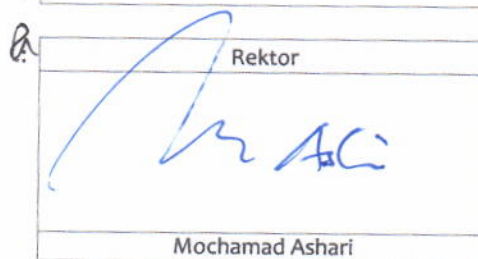 Rektor
Mochamad Ashari